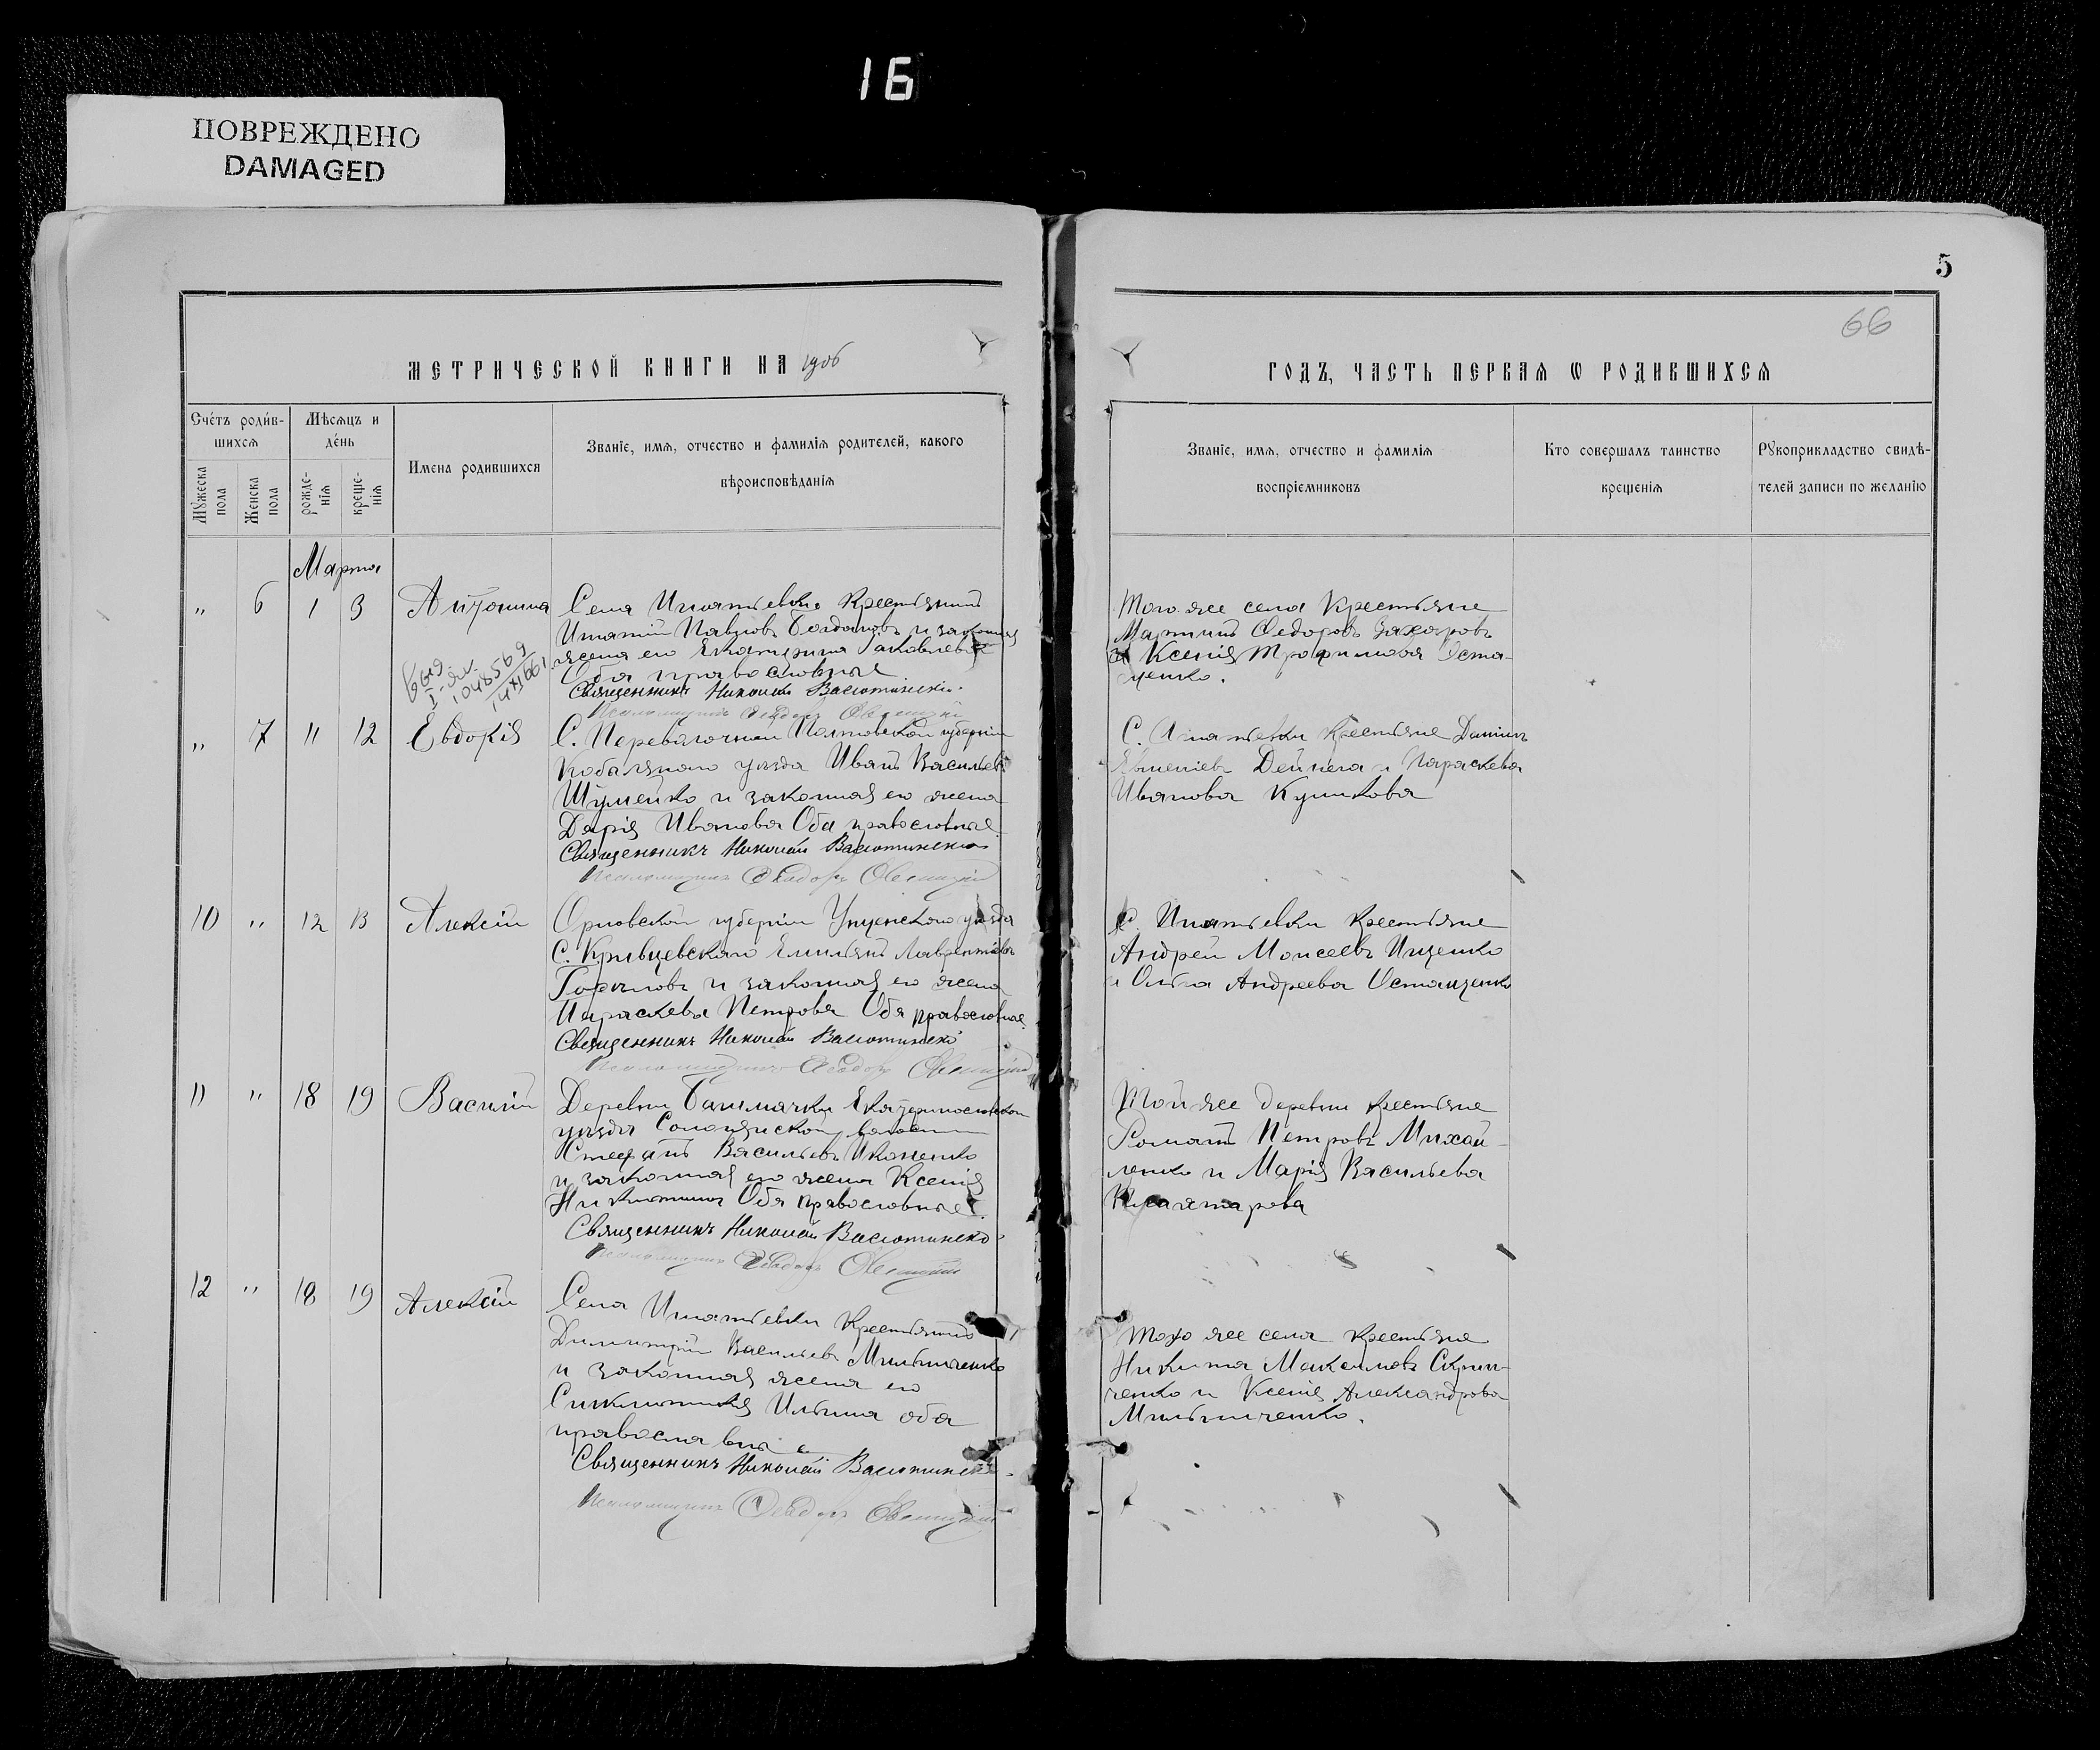 16
ПОВРЕЖДЕНО
DAMAGED
5
66
МЕТРИЧЕСКОЙ КНИГИ НА 1906
ГОДЪ, ЧАСТЬ ПЕРВАЯ Ѡ РОДИВШИХСЯ
Счéтъ роди́в-
шихсѧ
Мѣсѧцъ и
дéнь
Мꙋжеска
пола
Женска
пола
рожде-
нїѧ
креще-
нїѧ
Имена родившихсѧ
Званїе, имѧ, отчество и фамилїѧ родителей, какого
вѣроисповѣданїѧ
Званїе, имѧ, отчество и фамилїѧ
воспрїемниковъ
Кто совершалъ таинство
крещенїѧ
Рꙋкоприкладство свидѣ-
телей записи по желанїю
Марта
" 6 1 3 Антонина
Села Игнатьевки Крестьянинъ
Игнатій Павловъ Богдановъ и законная
жена его Екатерина Яковлева
Оба православные
Священникъ Николай Васютинскій
Псаломщикъ Ѳеодоръ
Того же села Крестьяне
Мартинъ Федоровъ Захаровъ
и Ксенія Трофимова Оста-
ценко.
выд.
I-яч.
1048569
14XI66
" 7 11 12 Евдокія
С. Переволочной Полтавской губерніи
Кобеляцкаго уезда Иванъ Васильевъ
Шумейко и законная его жена
Дарія Иванова Оба православные
Священникъ Николай Васютинскій
Псаломщикъ Ѳеодоръ
С. Игнатьевки Крестьяне Даніилъ
Дейнега и Параскева
Иванова Куликова
10 " 12 13 Алексій
Орловской губерніи уезда
С. Кривцевскаго Емильянъ Лаврентіевъ
и законная его жена
Параскева Петрова Оба православные
Священникъ Николай Васютинскій
Псаломщикъ Ѳеодоръ
С. Игнатьевки Крестьяне
Андрей Моисеевъ Ищенко
и Ольга Андреева Остащенко
11 " 18 19 Василій
Деревни Башмачки Екатеринославскаго
уезда волости
Стефанъ Васильевъ Икоменко
и законная его жена Ксенія
Никитина Оба православные.
Священникъ Николай Васютинскій
Псаломщикъ Ѳеодоръ
Той же деревни крестьяне
Романъ Петровъ Михай-
ленко и Марія Васильева
12 " 18 19 Алексій
Села Игнатьевки Крестьянинъ
Димитрій Васильевъ Мильниченко
и законная жена его
Синклитикія Ильина оба
православные
Священникъ Николай Васютинскій
Псаломщикъ Ѳеодоръ
Того же села крестьяне
Никита Максимовъ Скрип-
ченко и Ксенія Александрова
Мильниченко.